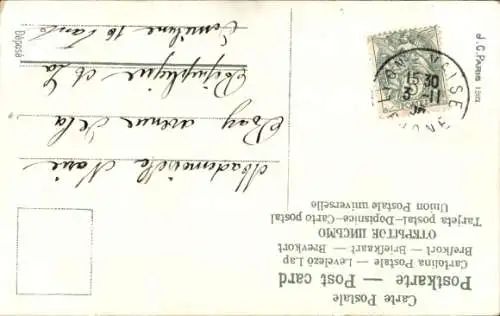 Carte Postale
Postkarte — Post card
Cartolina Postale — Levelező Lap
Brefkort — Briefkaart — Brevkort
ОТКРЫТОЕ ПИСЬМО
Tarjeta postal—Dopisnice—Carto postal
Union Postale universelle
Mademoiselle Marie
Bay avenue de la
République et La
16
Déposé
J.C. PARIS
15 30
3 -11